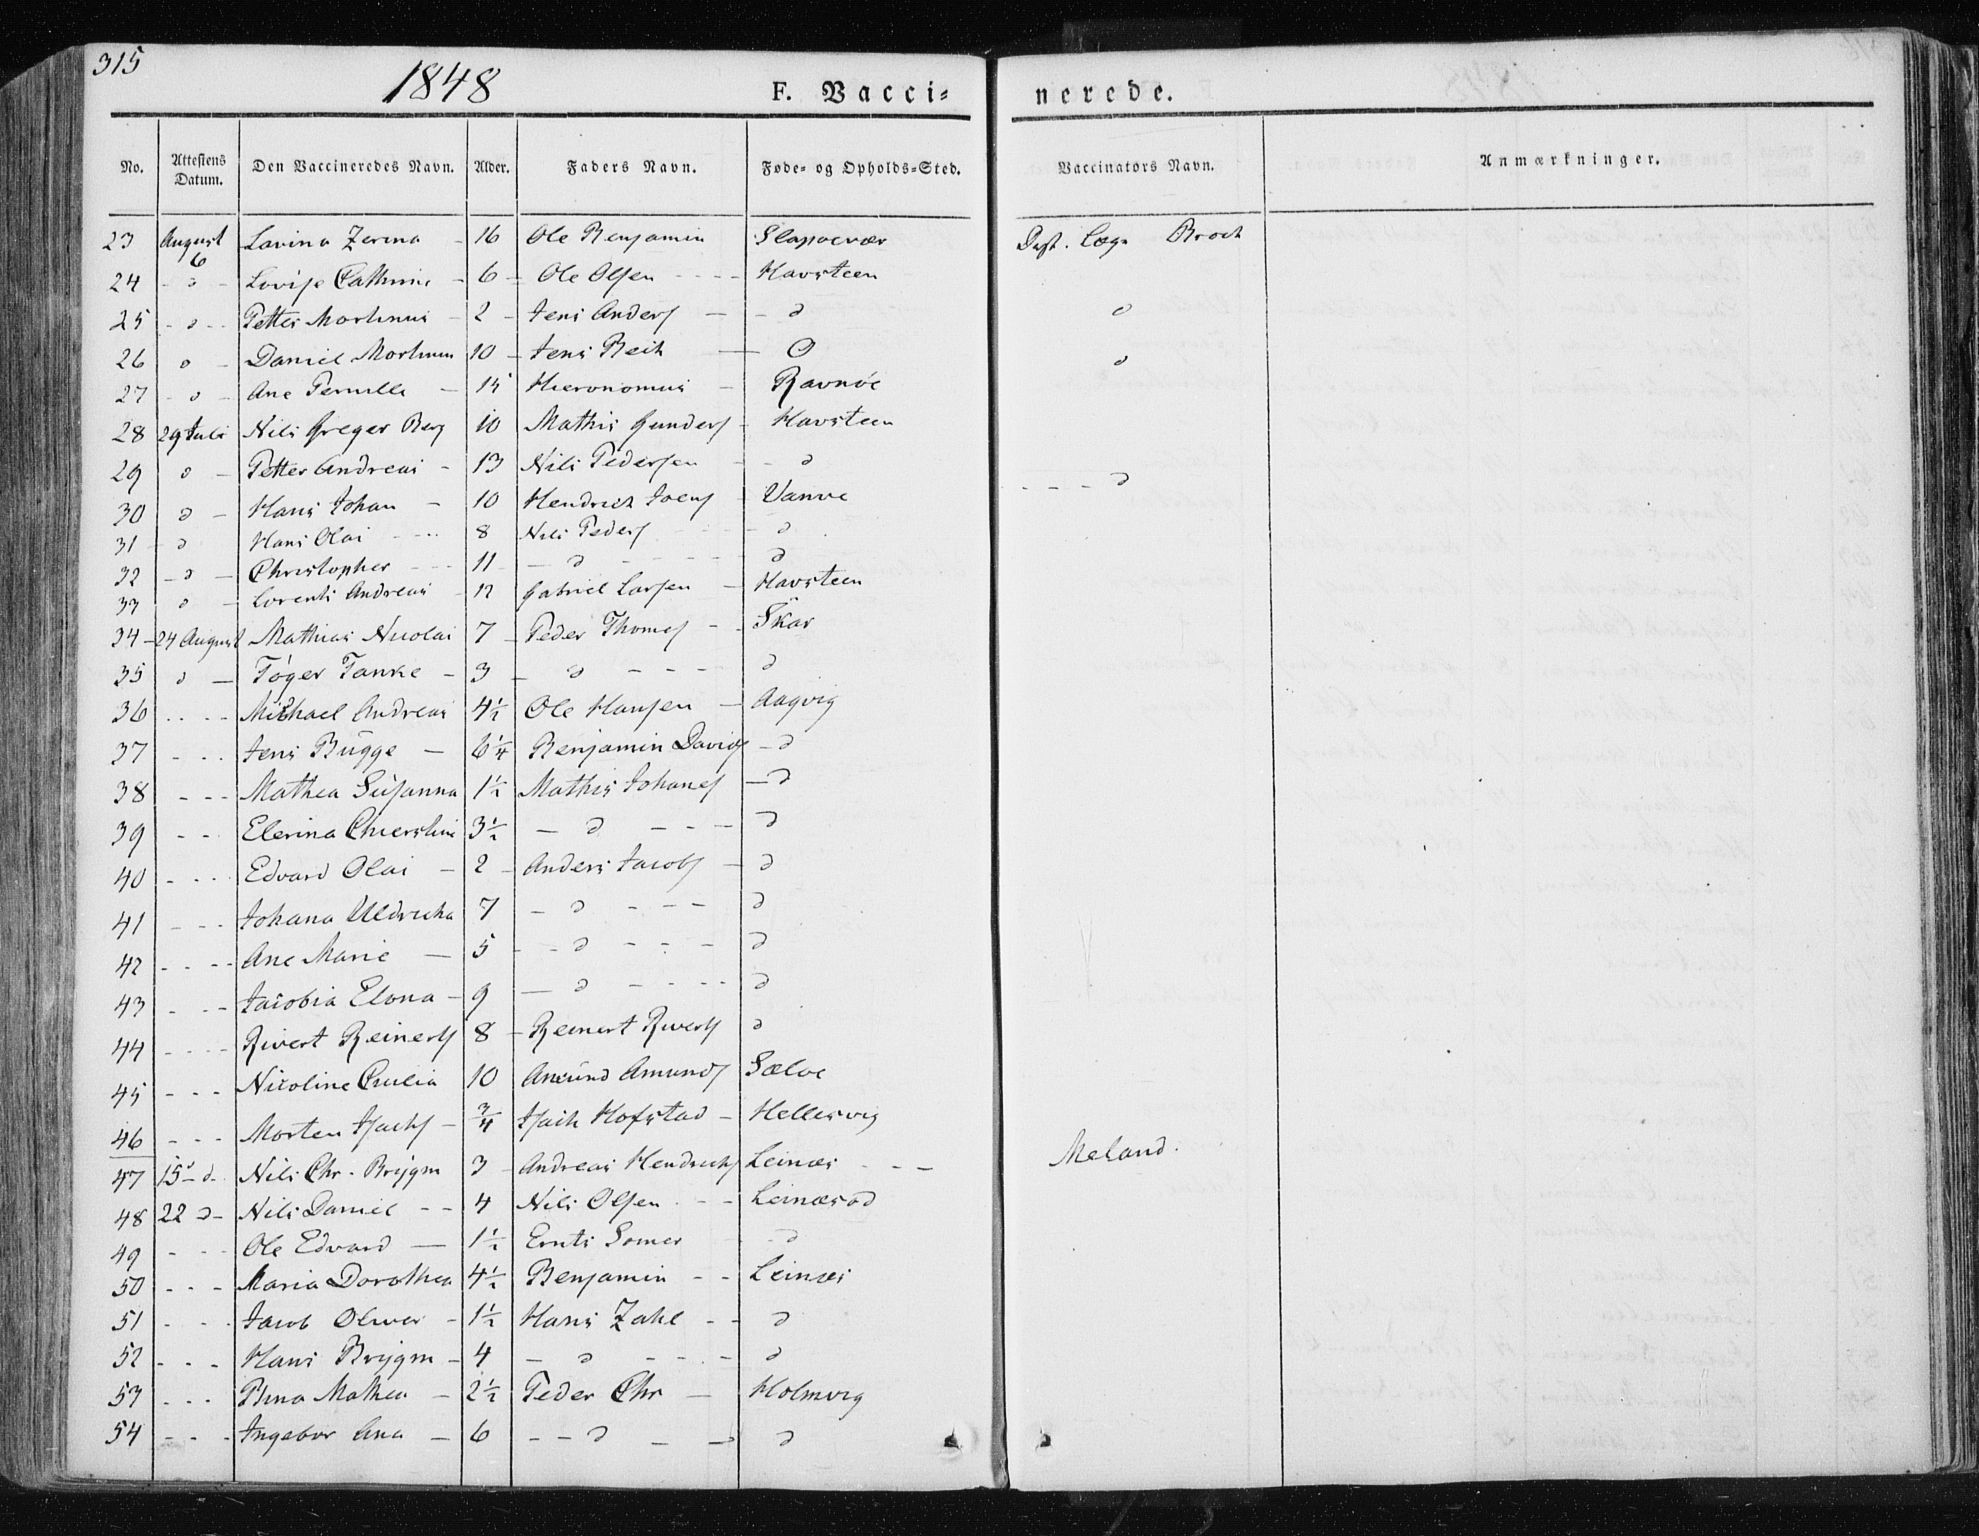 315
1848
F. Vacci=
nerede.
No. Attestens Datum. Den Vaccineredes Navn. Alder. Faders Navn. Føde- og Opholds=Sted. Vaccinators Navn. Anmærkninger.
23 August 6 Lavina Zerina - 16 Ole Benjamin Dist. Læge Broch
24 - d - Lovise Cathrine - 6 - Ole Olsen - - - - Havsteen
25 - d - - Petter Martinus - 2 - Jens Anders - - d d
26 d - Daniel 10 - Jens - d d
27 - d - Ane Pernille - 15 Hieronomus - Ravnøe
28 29 Juli Nils Greger Berg 10 Mathis Gunders - Havsteen
29 d - Petter Andreas - 13 Nils Pedersen - - d
30 d - Hans Johan - 10 Hendrich Joens - Vanvе - - - - d
31 - d Hans Olai - - - - 8 Nils Peders d
32 - d - Christopher - - - 11 - d - - - - - d
33 d - Lorents Andreas - 12 Gabriel Larsen - Havsteen
34 - 24 August Mathias Nicolai 7 - Peder Thomes - - Skar
35 d - Tøger Tanke - 3 - d - - - - d
36 . . - - Michael Andreas 4½ Ole Hansen - Aagvig
37 - . . Jens Bugge - 6¼ Benjamin Davids - d
38 - - - Mathea Susanna 1½ Mathis Johanes - d
39 - - Elerina 3½ - d - - - - d
40 - - - - Edvard Olai - 2 - Anders Jacobs - d
41 - - - Johana Uldricha 7 - d - - - d
42 - - - - Ane Marie - 5 - - d - - - d
43 - - - Jacobia Elona - 9 - d - - - - - d
44 - - - - Rivert Reinerts 8 - Reinert Riverts d
45 - - - Nicoline 10 Amund Amunds Sælve
46 - - - Morten - ¾ Hofstad - Hellesvig
47 15 - d - Nils Chr. Brygm 3 - Andreas Hendrichs Leinæs - - - Meland.
48 22 d - Nils Daniel - - 4 Nils Olsen - - - Leinæs
49 - - - Ole Edvard - 1½ Ernts Somer - d
50 - - - Maria Dorothea 4½ Benjamin - - Leinæs
51 - - - Jacob Oliver - 1½ Hans Zahl - - d
52 - - - Hans Brygm - 4 - d - - - - d
53 - - - Mathea - 2½ Peder Chr - Holmvig
54 - - - Ingebor Ana - 6 - - d - - d